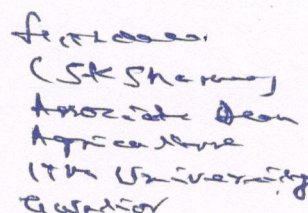 (SK Sharma)
Associate Dean
Agriculture
ITM University
Gwalior